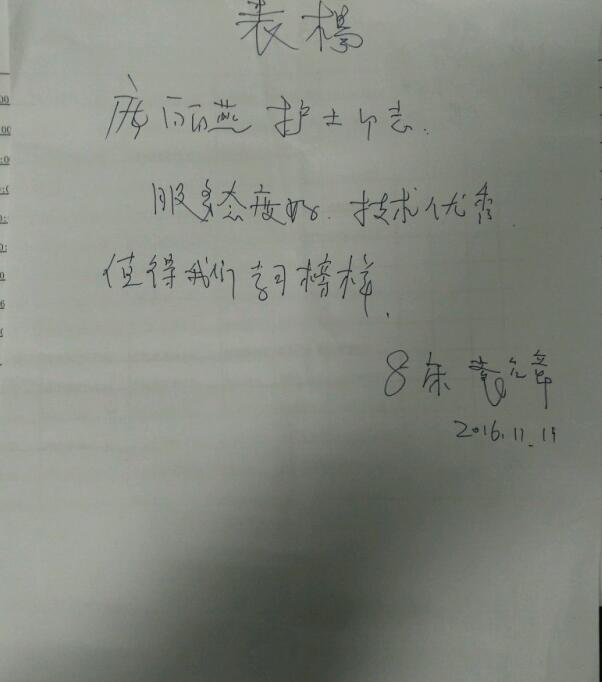 表楊
庞丽燕 护士同志.
服务态度好. 技术优秀.
值得我们学习榜样.
8床
2016.11.19